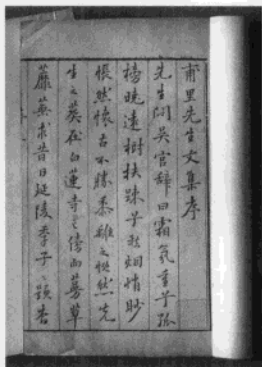 甫里先生文集序
先生問吳宮辭曰霜氛重兮孤
榜曉遠樹扶踈兮愁烟悄眇
悵然懷古不勝黍離之慨然先
生之葬在白蓮寺之傍而蔓草
蘼蕪求昔日延陵季子之題杳